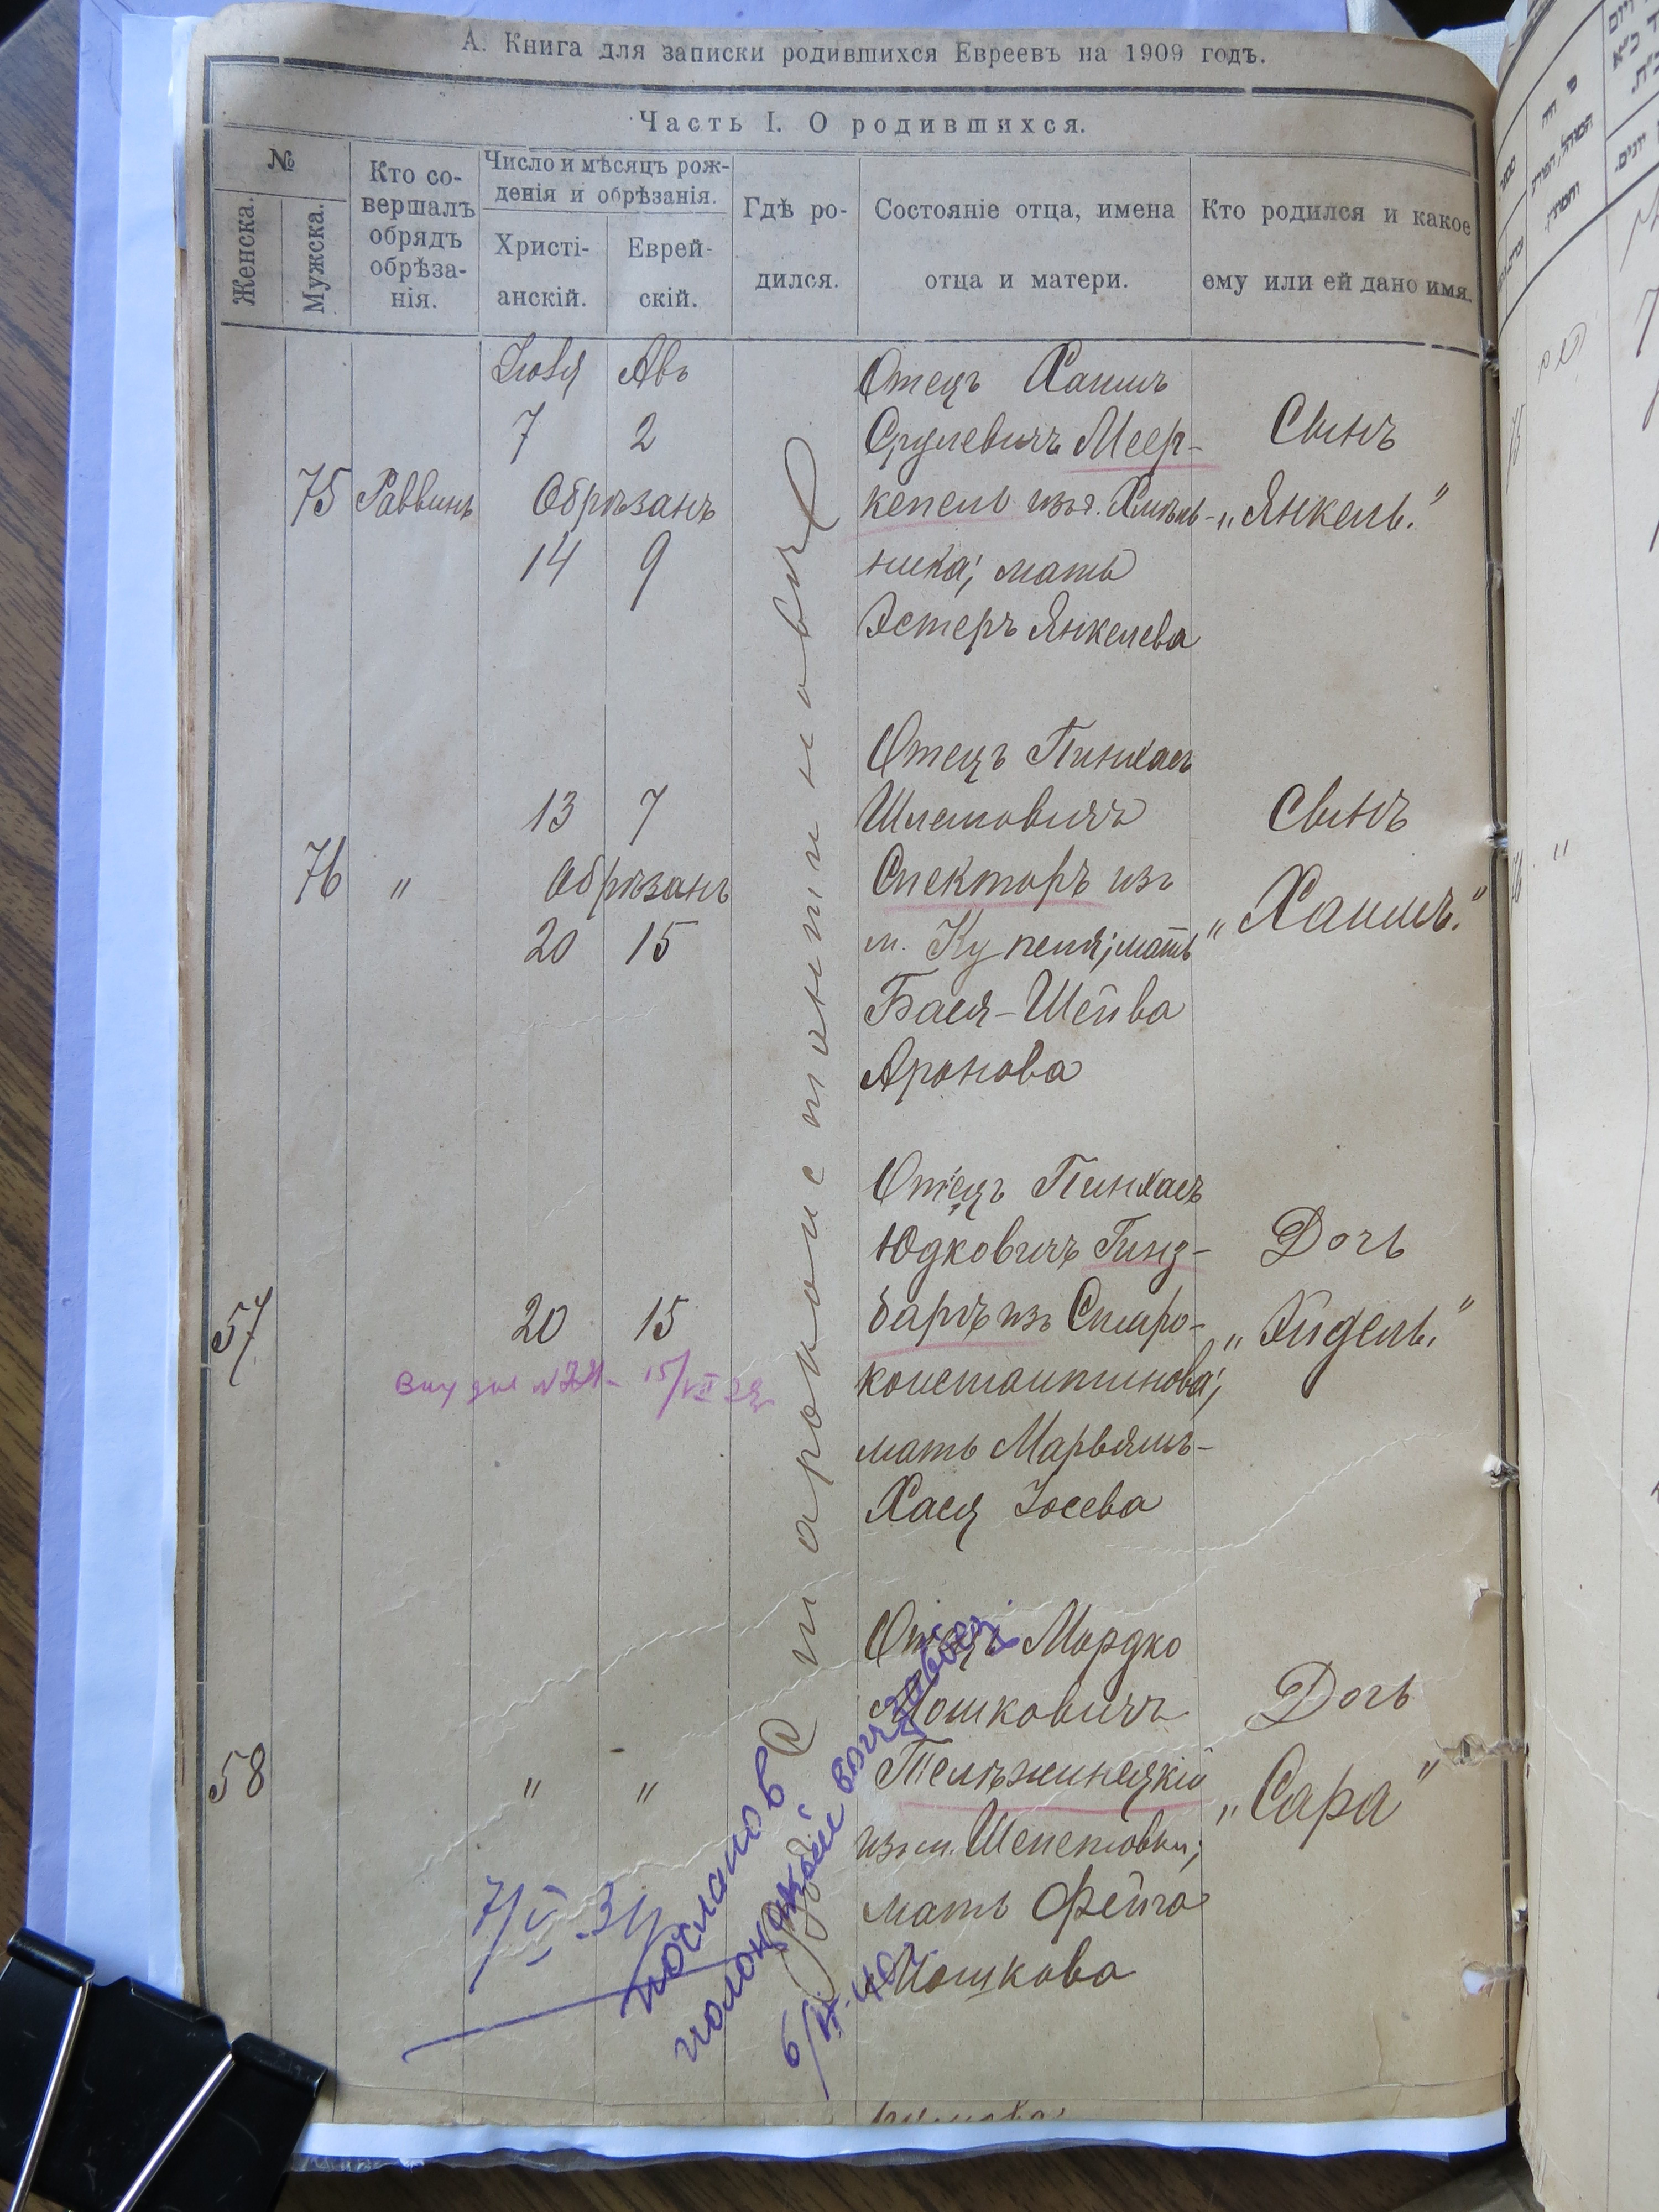 А. Книга для записки родившихся Евреевъ на 1909 годъ.
Часть I. О родившихся.
№
Женска.
Мужска.
Кто со-
вершалъ
обрядъ
обрѣза-
нія.
Число и мѣсяцъ рож-
денія и обрѣзанія.
Христі-
анскій.
Еврей-
скій.
Гдѣ ро-
дился.
Состояніе отца, имена
отца и матери.
Кто родился и какое
ему или ей дано имя.
Іюля Авъ
7 2
75 Раввинъ Обрѣзанъ
14 9
Отецъ Хаимъ
Срулевичъ Меер-
кепель изъ г. Хмѣль-
ника; мать
Эстеръ Янкелева
Сынъ
„Янкель."
13 7
76 " Обрѣзанъ
20 15
Отецъ Пинхасъ
Шлемовичъ
Спекторъ изъ
м. Купеля; мать
Бася-Шейва
Аронова
Сынъ
„Хаимъ."
57 20 15
Отецъ Пинхасъ
Юдковичъ Гинз-
баргъ изъ Старо-
константинова;
мать Марьямъ-
Хася Іосева
Дочь
„Хидель."
15/VII
58 " "
Отецъ Мордко
Мошковичъ
Телѣжинецкій
изъ м. Шепетовки;
мать Фейга
Иошкова
Дочь
„Сара"
Староконстантиновъ
7/V-31
послано в